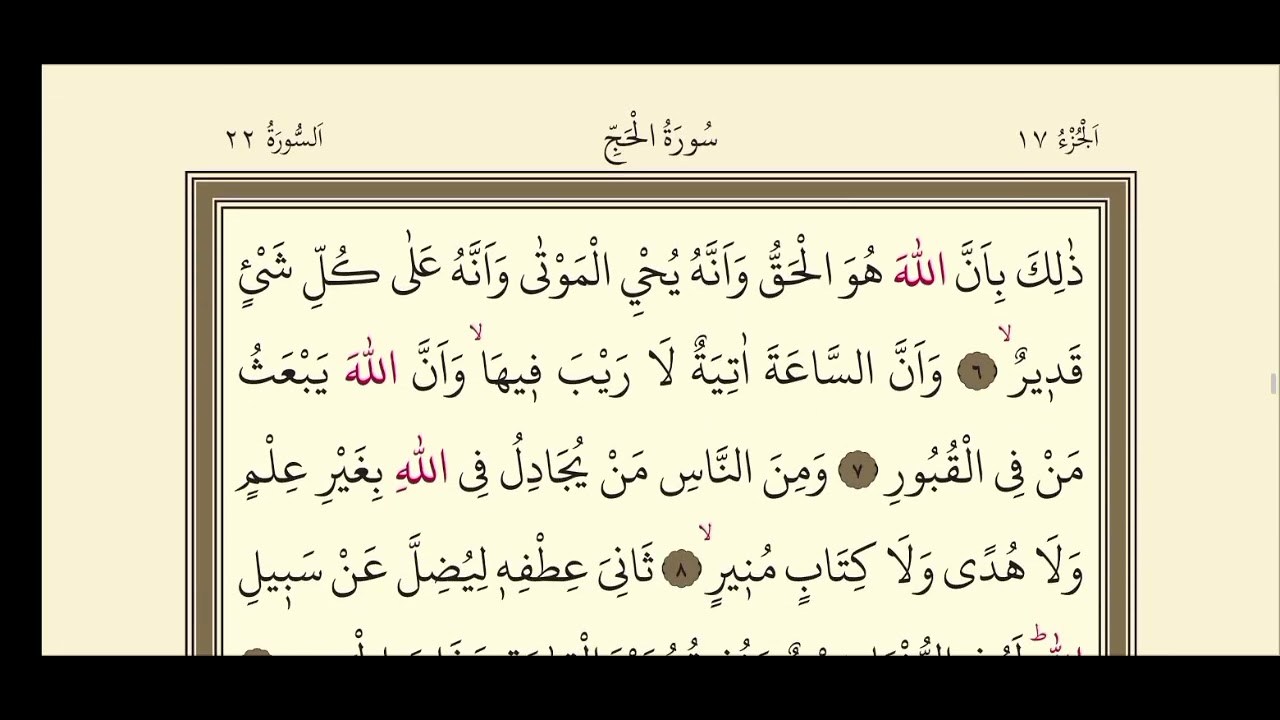 اَلْجُزْءُ ١٧ سُورَةُ الْحَجِّ اَلسُّورَةُ ٢٢
ذٰلِكَ بِاَنَّ اللّٰهَ هُوَ الْحَقُّ وَاَنَّهُ يُحْيِ الْمَوْتٰى وَاَنَّهُ عَلٰى كُلِّ شَيْءٍ
قَد۪يرٌۙ ٦ وَاَنَّ السَّاعَةَ اٰتِيَةٌ لَا رَيْبَ ف۪يهَاۙ وَاَنَّ اللّٰهَ يَبْعَثُ
مَنْ فِى الْقُبُورِ ٧ وَمِنَ النَّاسِ مَنْ يُجَادِلُ فِى اللّٰهِ بِغَيْرِ عِلْمٍ
وَلَا هُدًى وَلَا كِتَابٍ مُن۪يرٍۙ ٨ ثَانِىَ عِطْفِه۪ لِيُضِلَّ عَنْ سَب۪يلِ